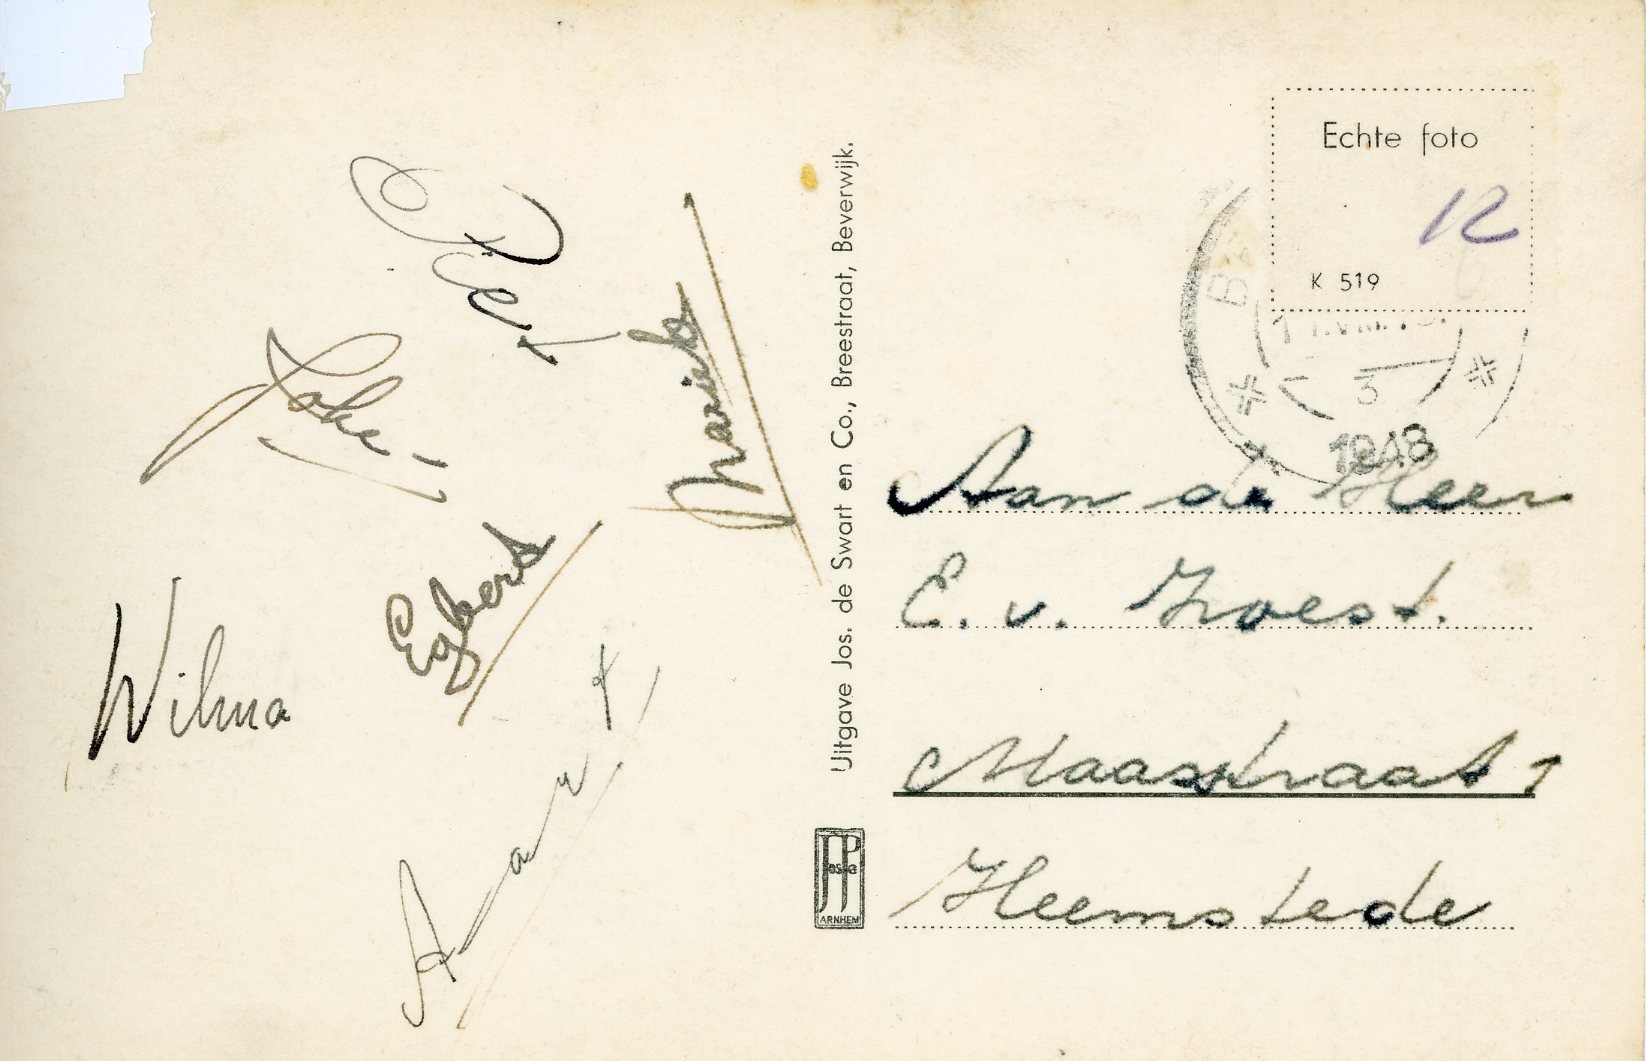 Piet
Joke
Marieke
Egbert
Wilma
Aart
Uitgave Jos. de Swart en Co., Breestraat, Beverwijk.
JosPé
ARNHEM
Echte foto
12
K 519
3
1948
Aan de Heer
E. v. Zoest.
Maasstraat 1
Heemstede